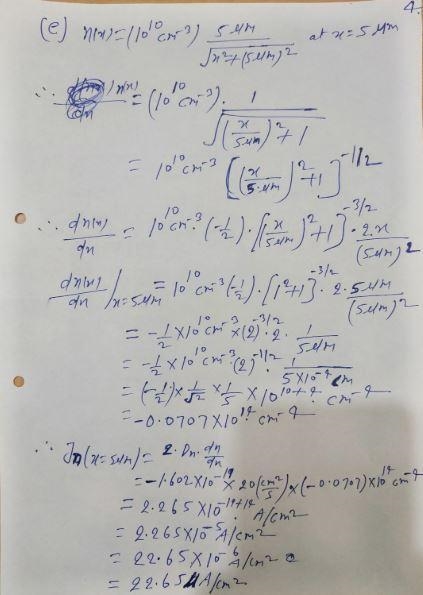 4.
(e) n(x) = (10^10 cm^-3) 5μm / √(x^2+(5μm)^2) at x = 5μm
∴ n(x) = (10^10 cm^-3) · 1 / √((x/5μm)^2 + 1)
= 10^10 cm^-3 [(x/5μm)^2 + 1]^-1/2
∴ dn(x)/dx = 10^10 cm^-3 · (-1/2) · [(x/5μm)^2 + 1]^-3/2 · 2·x/(5μm)^2
dn(x)/dx |x=5μm = 10^10 cm^-3 (-1/2) · [1^2+1]^-3/2 · 2·5μm/(5μm)^2
= -1/2 × 10^10 cm^-3 × (2)^-3/2 · 2 · 1/5μm
= -1/2 × 10^10 cm^-3 · (2)^-1/2 · 1/5×10^-4 cm
= (-1/2) × 1/√2 × 1/5 × 10^10+4 · cm^-4
= -0.0707 × 10^14 cm^-4
∴ Jn (x=5μm) = 2·Dn· dn/dx
= -1.602×10^-19 × 20 (cm^2/s) × (-0.0707) × 10^14 cm^-4
= 2.265 × 10^-19+14 A/cm^2
= 2.265 × 10^-5 A/cm^2
= 22.65 × 10^-6 A/cm^2
= 22.65 μA/cm^2